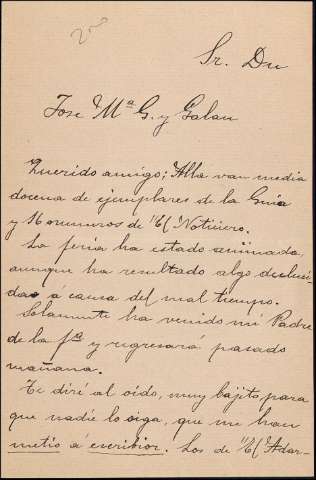 Sr. Dn
Jose Mª G. y Galan
Querido amigo; Allá van media
docena de ejemplares de la Guia
y Numeros de "El Noticiero.
La feria ha estado animada,
aunque ha resultado algo desluci-
da á causa del mal tiempo.
Solamente ha venido mi Padre
de la fª y regresará pasado
mañana.
Te diré al oído, muy bajito, para
que nadie lo oiga, que me han
metio á escribior. Los de "El Adar-